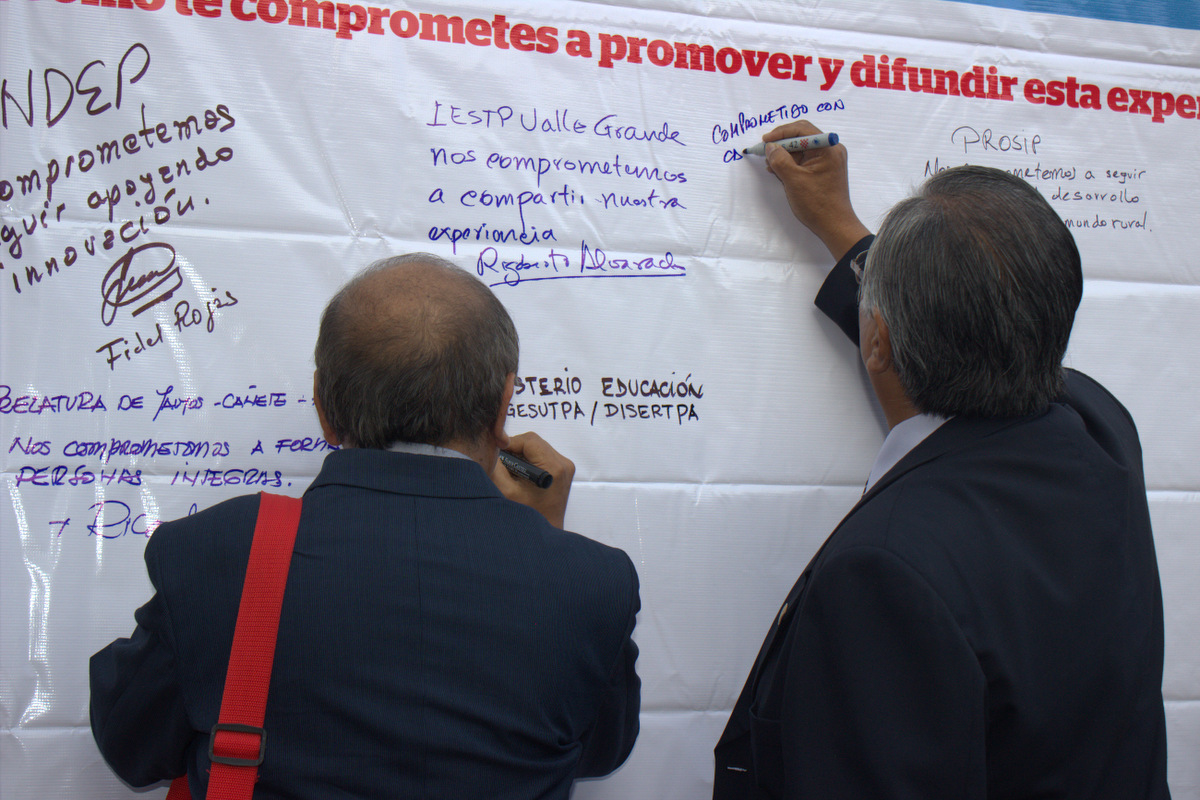 como te comprometes a promover y difundir esta exper
NDEP
omprometemos
guir apoyando
innovación.
Fidel Rojas
IESTP Valle Grande
nos comprometemos
a compartir nuestra
experiencia
Rigoberto Alvarado
COMPROMETIDO CON
PROSIP
a seguir
desarrollo
mundo rural.
RELATURA DE Yauyos - CAÑETE -
NOS COMPROMETEMOS A FORMA
PERSONAS INTEGRAS.
+ Rica
STERIO EDUCACIÓN
GESUTPA / DISERTPA
42